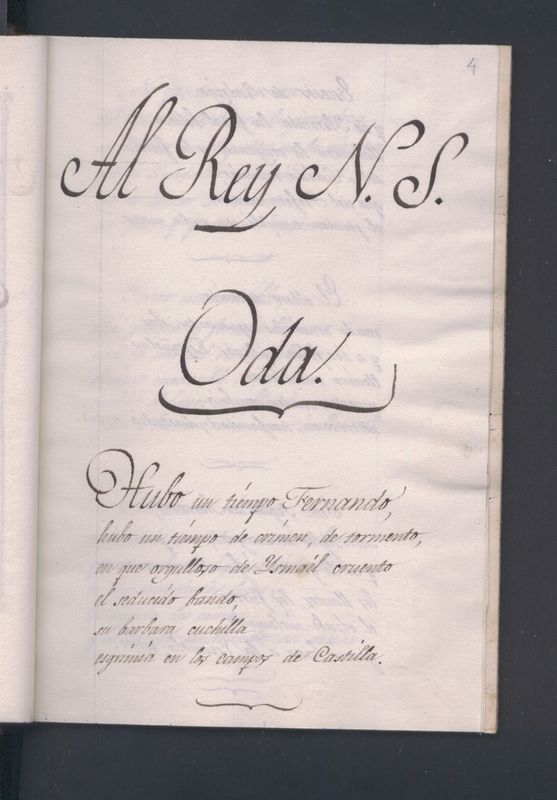 4
Al Rey N. S.
Oda.
Hubo un tiémpo Fernando,
hubo un tiémpo de crímen, de tormento,
en que orgulloso de Ysmaél cruento
el seducido bando,
su bárbara cuchilla
esgrimía en los campos de Castilla.